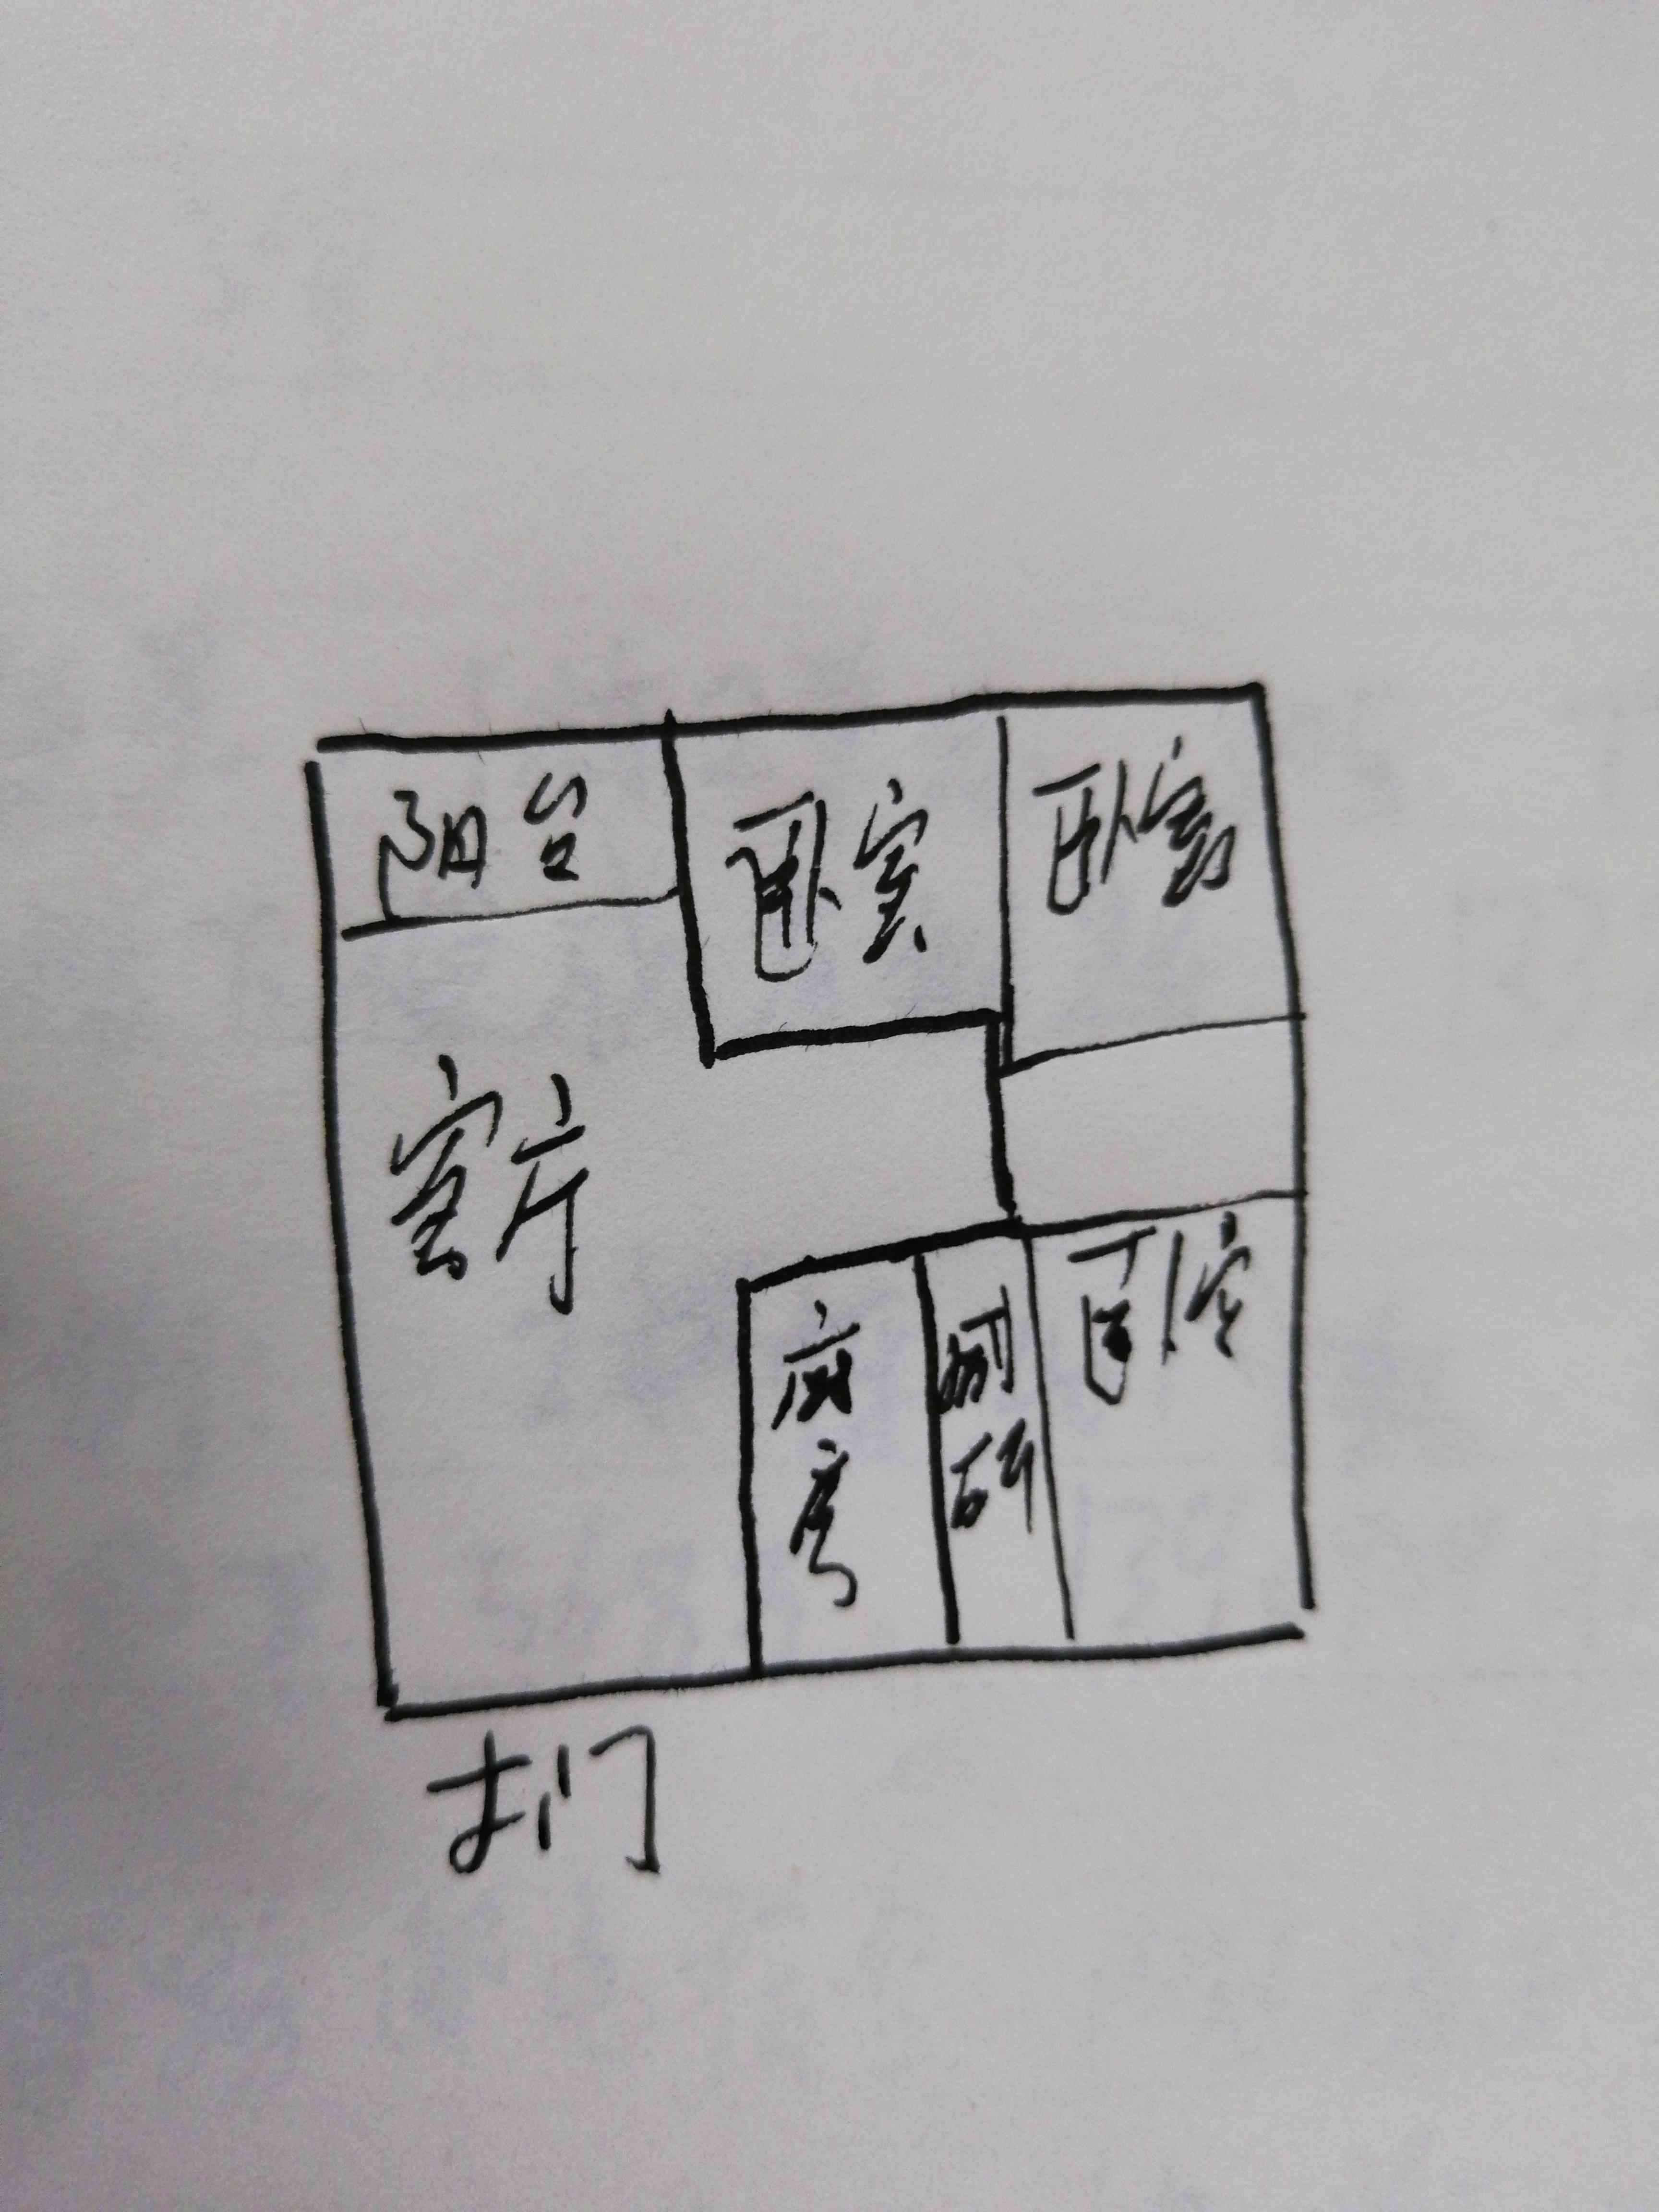 阳台
卧室
卧室
客厅
厨房
厕所
卧室
大门